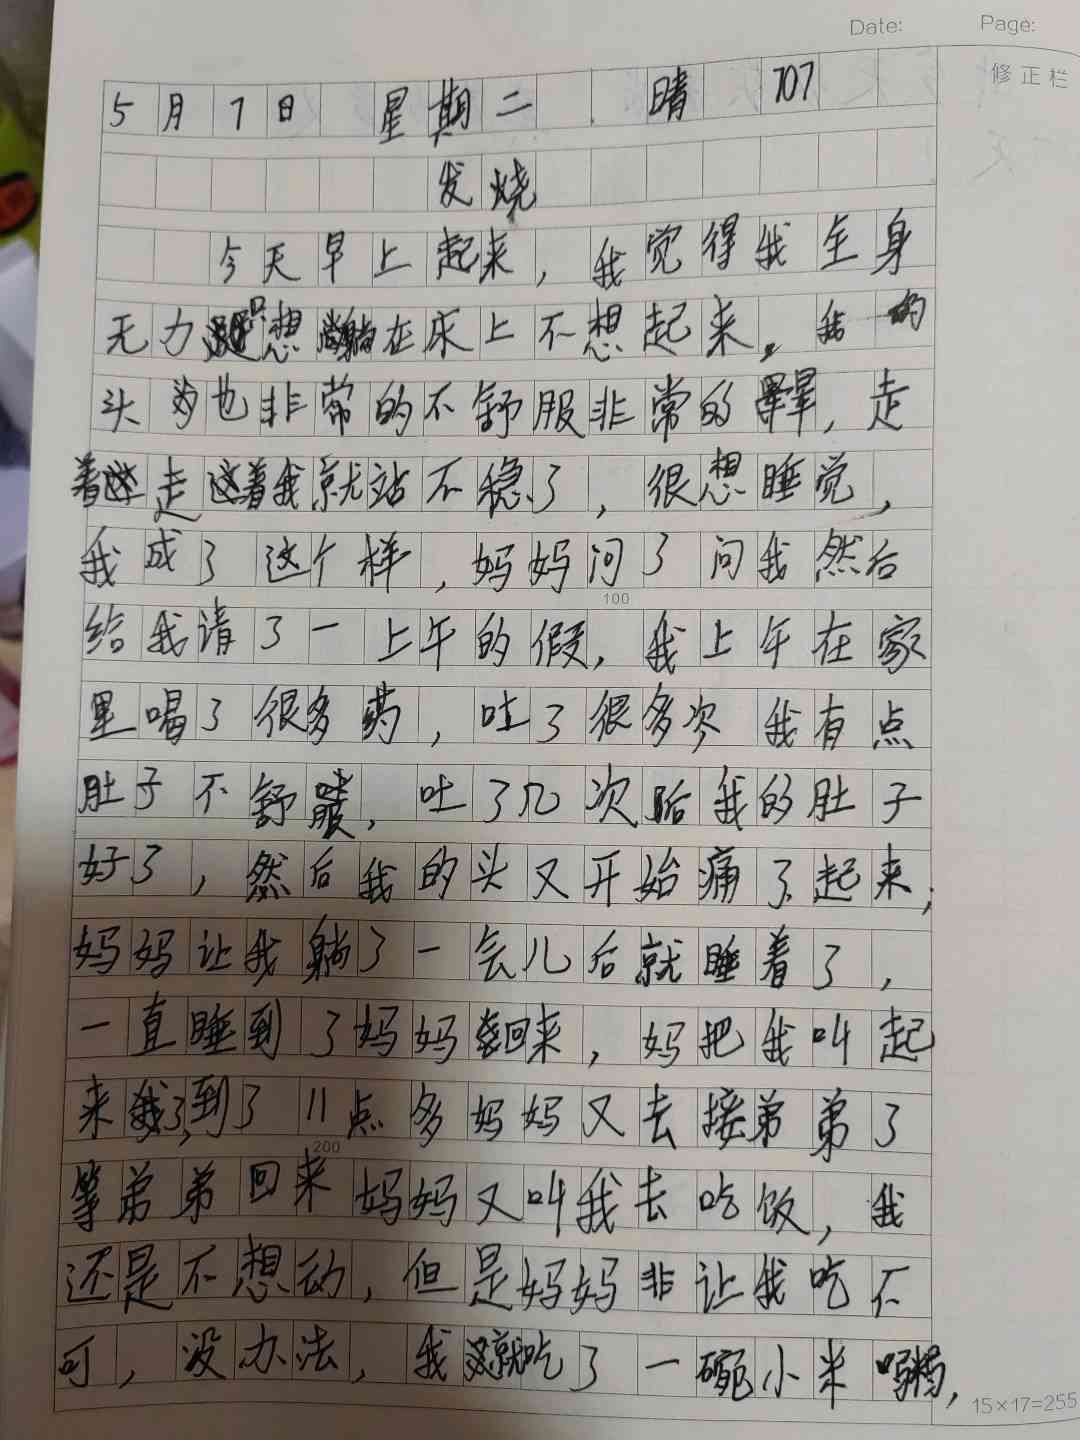 Date: Page:
修正栏
5月7日 星期二 晴 707
发烧
今天早上起来，我觉得我全身
无力只想躺在床上不想起来。我的
头也非常的不舒服非常的晕，走
着走着我就站不稳了，很想睡觉，
我成了这个样，妈妈问了问我然后
100
给我请了一上午的假，我上午在家
里喝了很多药，吐了很多次 我有点
肚子不舒服，吐了几次后我的肚子
好了，然后我的头又开始痛了起来，
妈妈让我躺了一会儿后就睡着了，
一直睡到了妈妈回来，妈把我叫起
来了，到了11点多妈妈又去接弟弟了
200
等弟弟回来妈妈又叫我去吃饭，我
还是不想动，但是妈妈非让我吃不
可，没办法，我就吃了一碗小米粥，
15×17=255